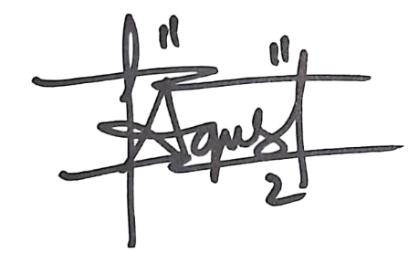 " Agus "
2